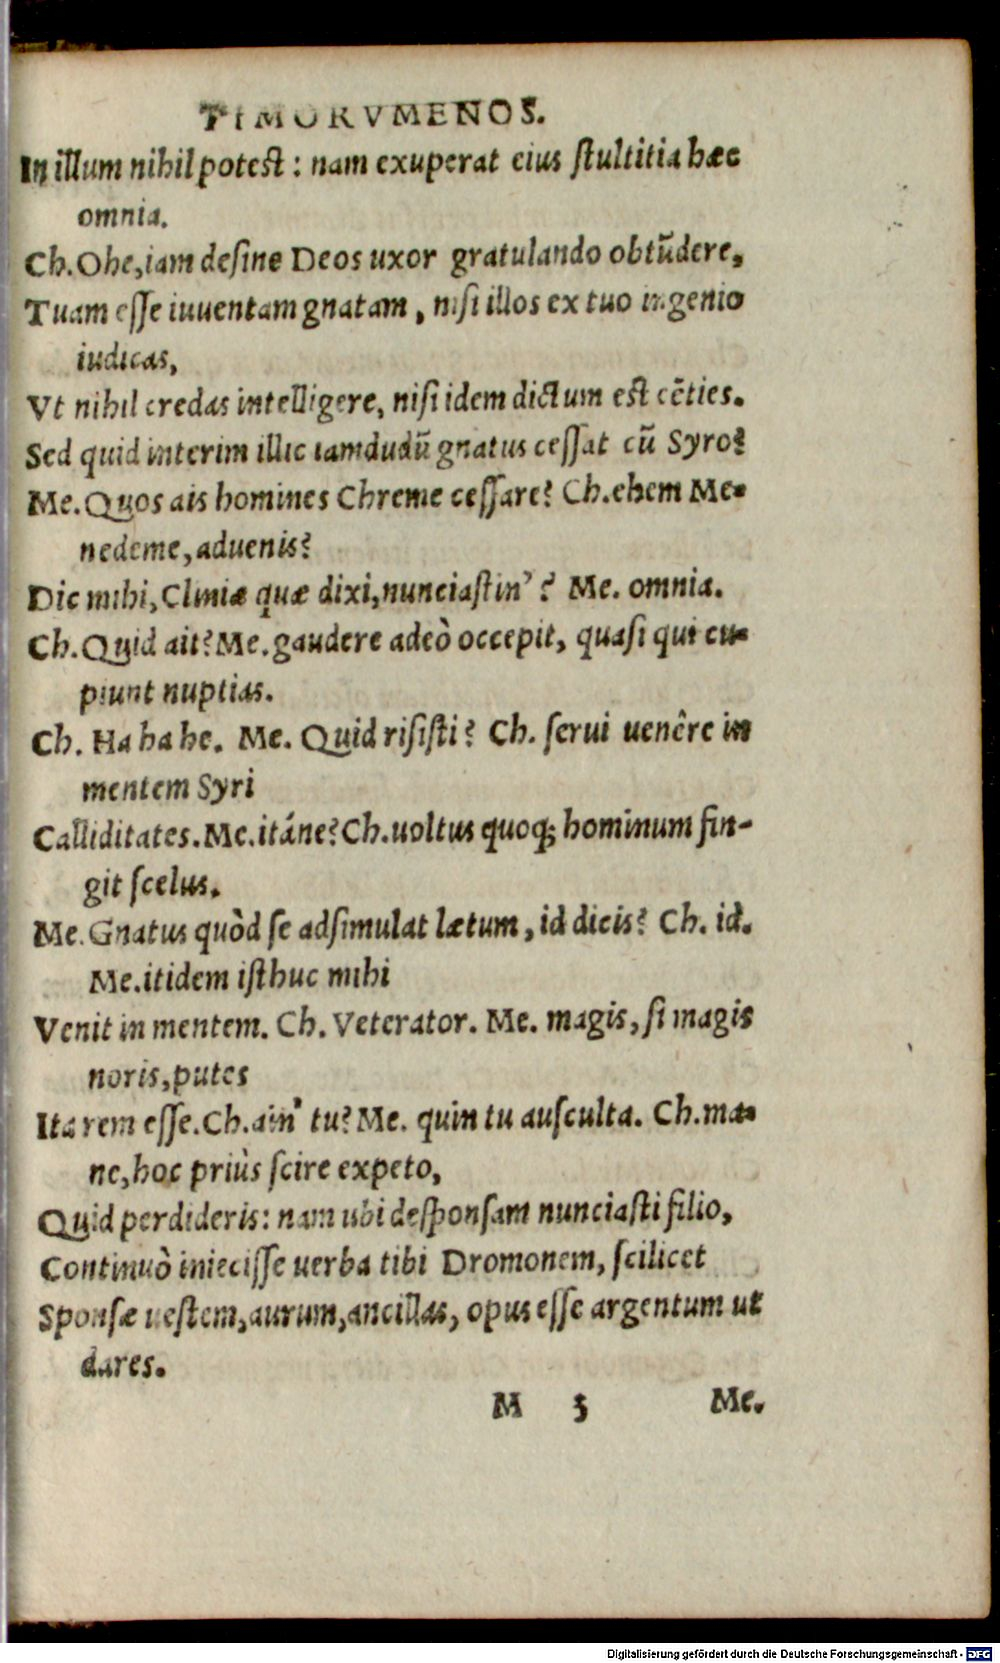 TIMORVMENOS.
In illum nihil potest : nam exuperat eius ſtultitia hæc
omnia.
Ch. Ohe, iam deſine Deos uxor gratulando obtũdere,
Tuam eſſe iuuentam gnatam , niſi illos ex tuo ingenio
iudicas,
Vt nihil credas intelligere, niſi idem dictum eſt cẽties.
Sed quid interim illic iamdudũ gnatus ceſſat cũ Syro?
Me. Quos ais homines Chreme ceſſare? Ch. ehem Me-
nedeme, aduenis?
Dic mihi, Cliniæ quæ dixi, nunciaſtin' ? Me. omnia.
Ch. Quid ait? Me. gaudere adeò occepit, quaſi qui cu-
piunt nuptias.
Ch. Ha ha he. Me. Quid riſiſti? Ch. ſerui uenêre in
mentem Syri
Calliditates. Me. itáne? Ch. uoltus quoq; hominum fin-
git ſcelus.
Me. Gnatus quòd ſe adſimulat lætum, id dicis? Ch. id.
Me. itidem iſthuc mihi
Venit in mentem. Ch. Veterator. Me. magis, ſi magis
noris, putes
Ita rem eſſe. Ch. ain' tu? Me. quin tu auſculta. Ch. ma-
ne, hoc priùs ſcire expeto,
Quid perdideris: nam ubi deſponſam nunciaſti filio,
Continuò inieciſſe uerba tibi Dromonem, ſcilicet
Sponſæ ueſtem, aurum, ancillas, opus eſſe argentum ut
dares.
M 5 Me.
Digitalisierung gefördert durch die Deutsche Forschungsgemeinschaft - DFG